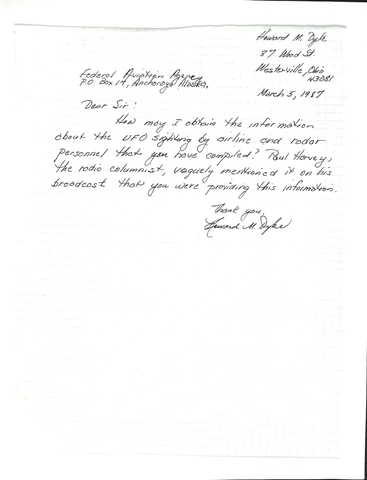 Howard M. Dyke
87 Wood St.
Westerville, Ohio
43081
March 5, 1987
Federal Aviation Agency
P.O. Box 14, Anchorage Alaska,
Dear Sir:
How may I obtain the information
about the UFO sighting by airline and radar
personnel that you have compiled? Paul Harvey,
the radio columnist, vaguely mentioned it on his
broadcast that you were providing this information.
Thank you,
Howard M. Dyke